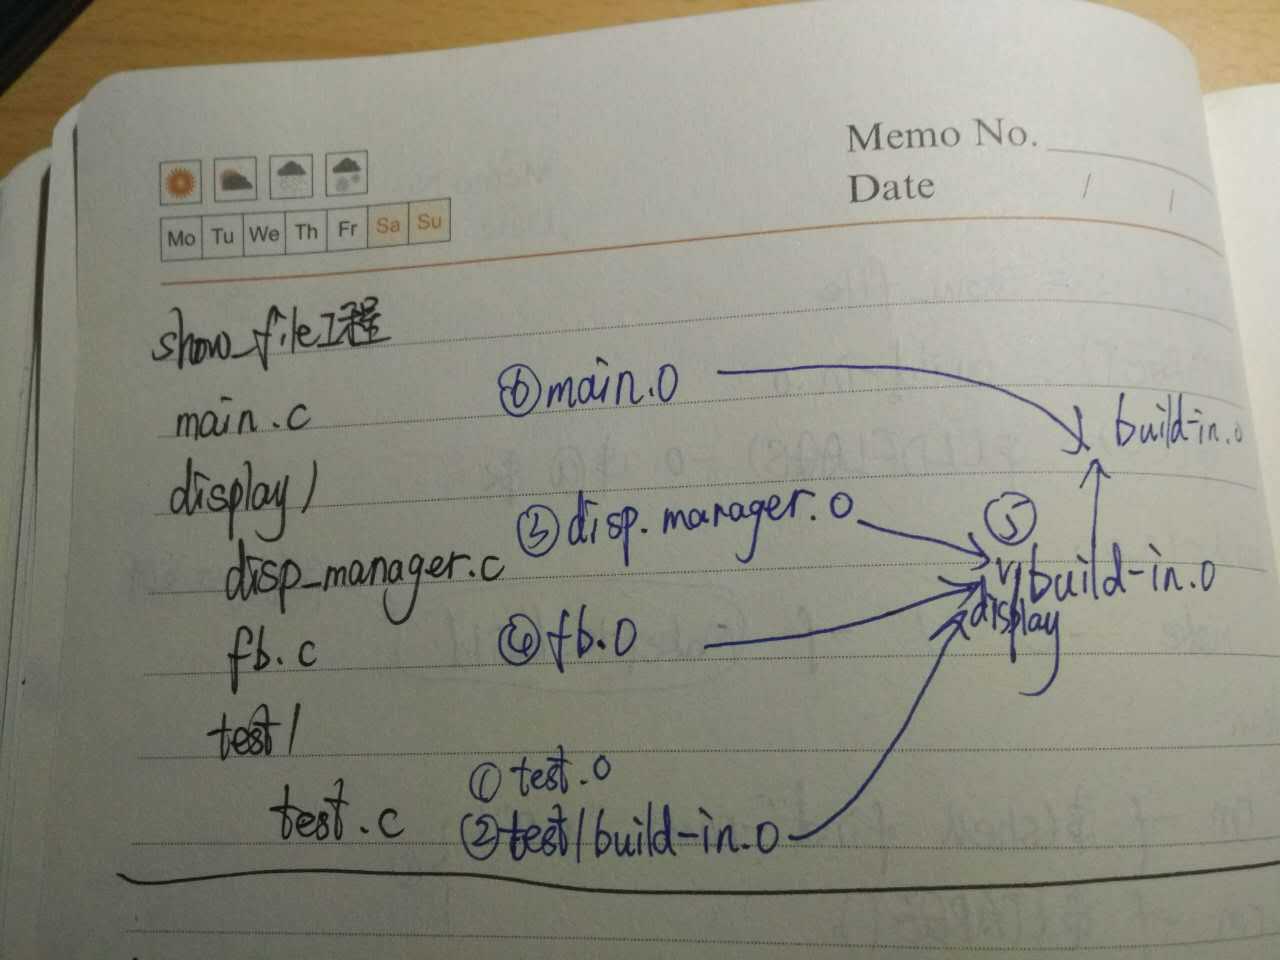 Memo No.
Date / /
Mo Tu We Th Fr Sa Su
show_file工程
main.c ⑥main.o build-in.o
display/
disp_manager.c ③disp.manager.o ⑤
display/build-in.o
fb.c ④fb.o
test/
①test.o
test.c ②test/build-in.o